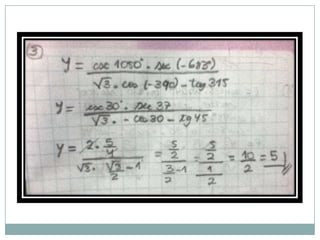 3
y = csc 1050° · sec (-683°) / √3 · cos (-390) - tag 315
y = csc 30° · sec 37 / √3 · - cos 30 - tg 45
y = 2 · 5/4 / √3 · √3/2 - 1 = 5/2 / 3/2 - 1 = 5/2 / 1/2 = 10/2 = 5